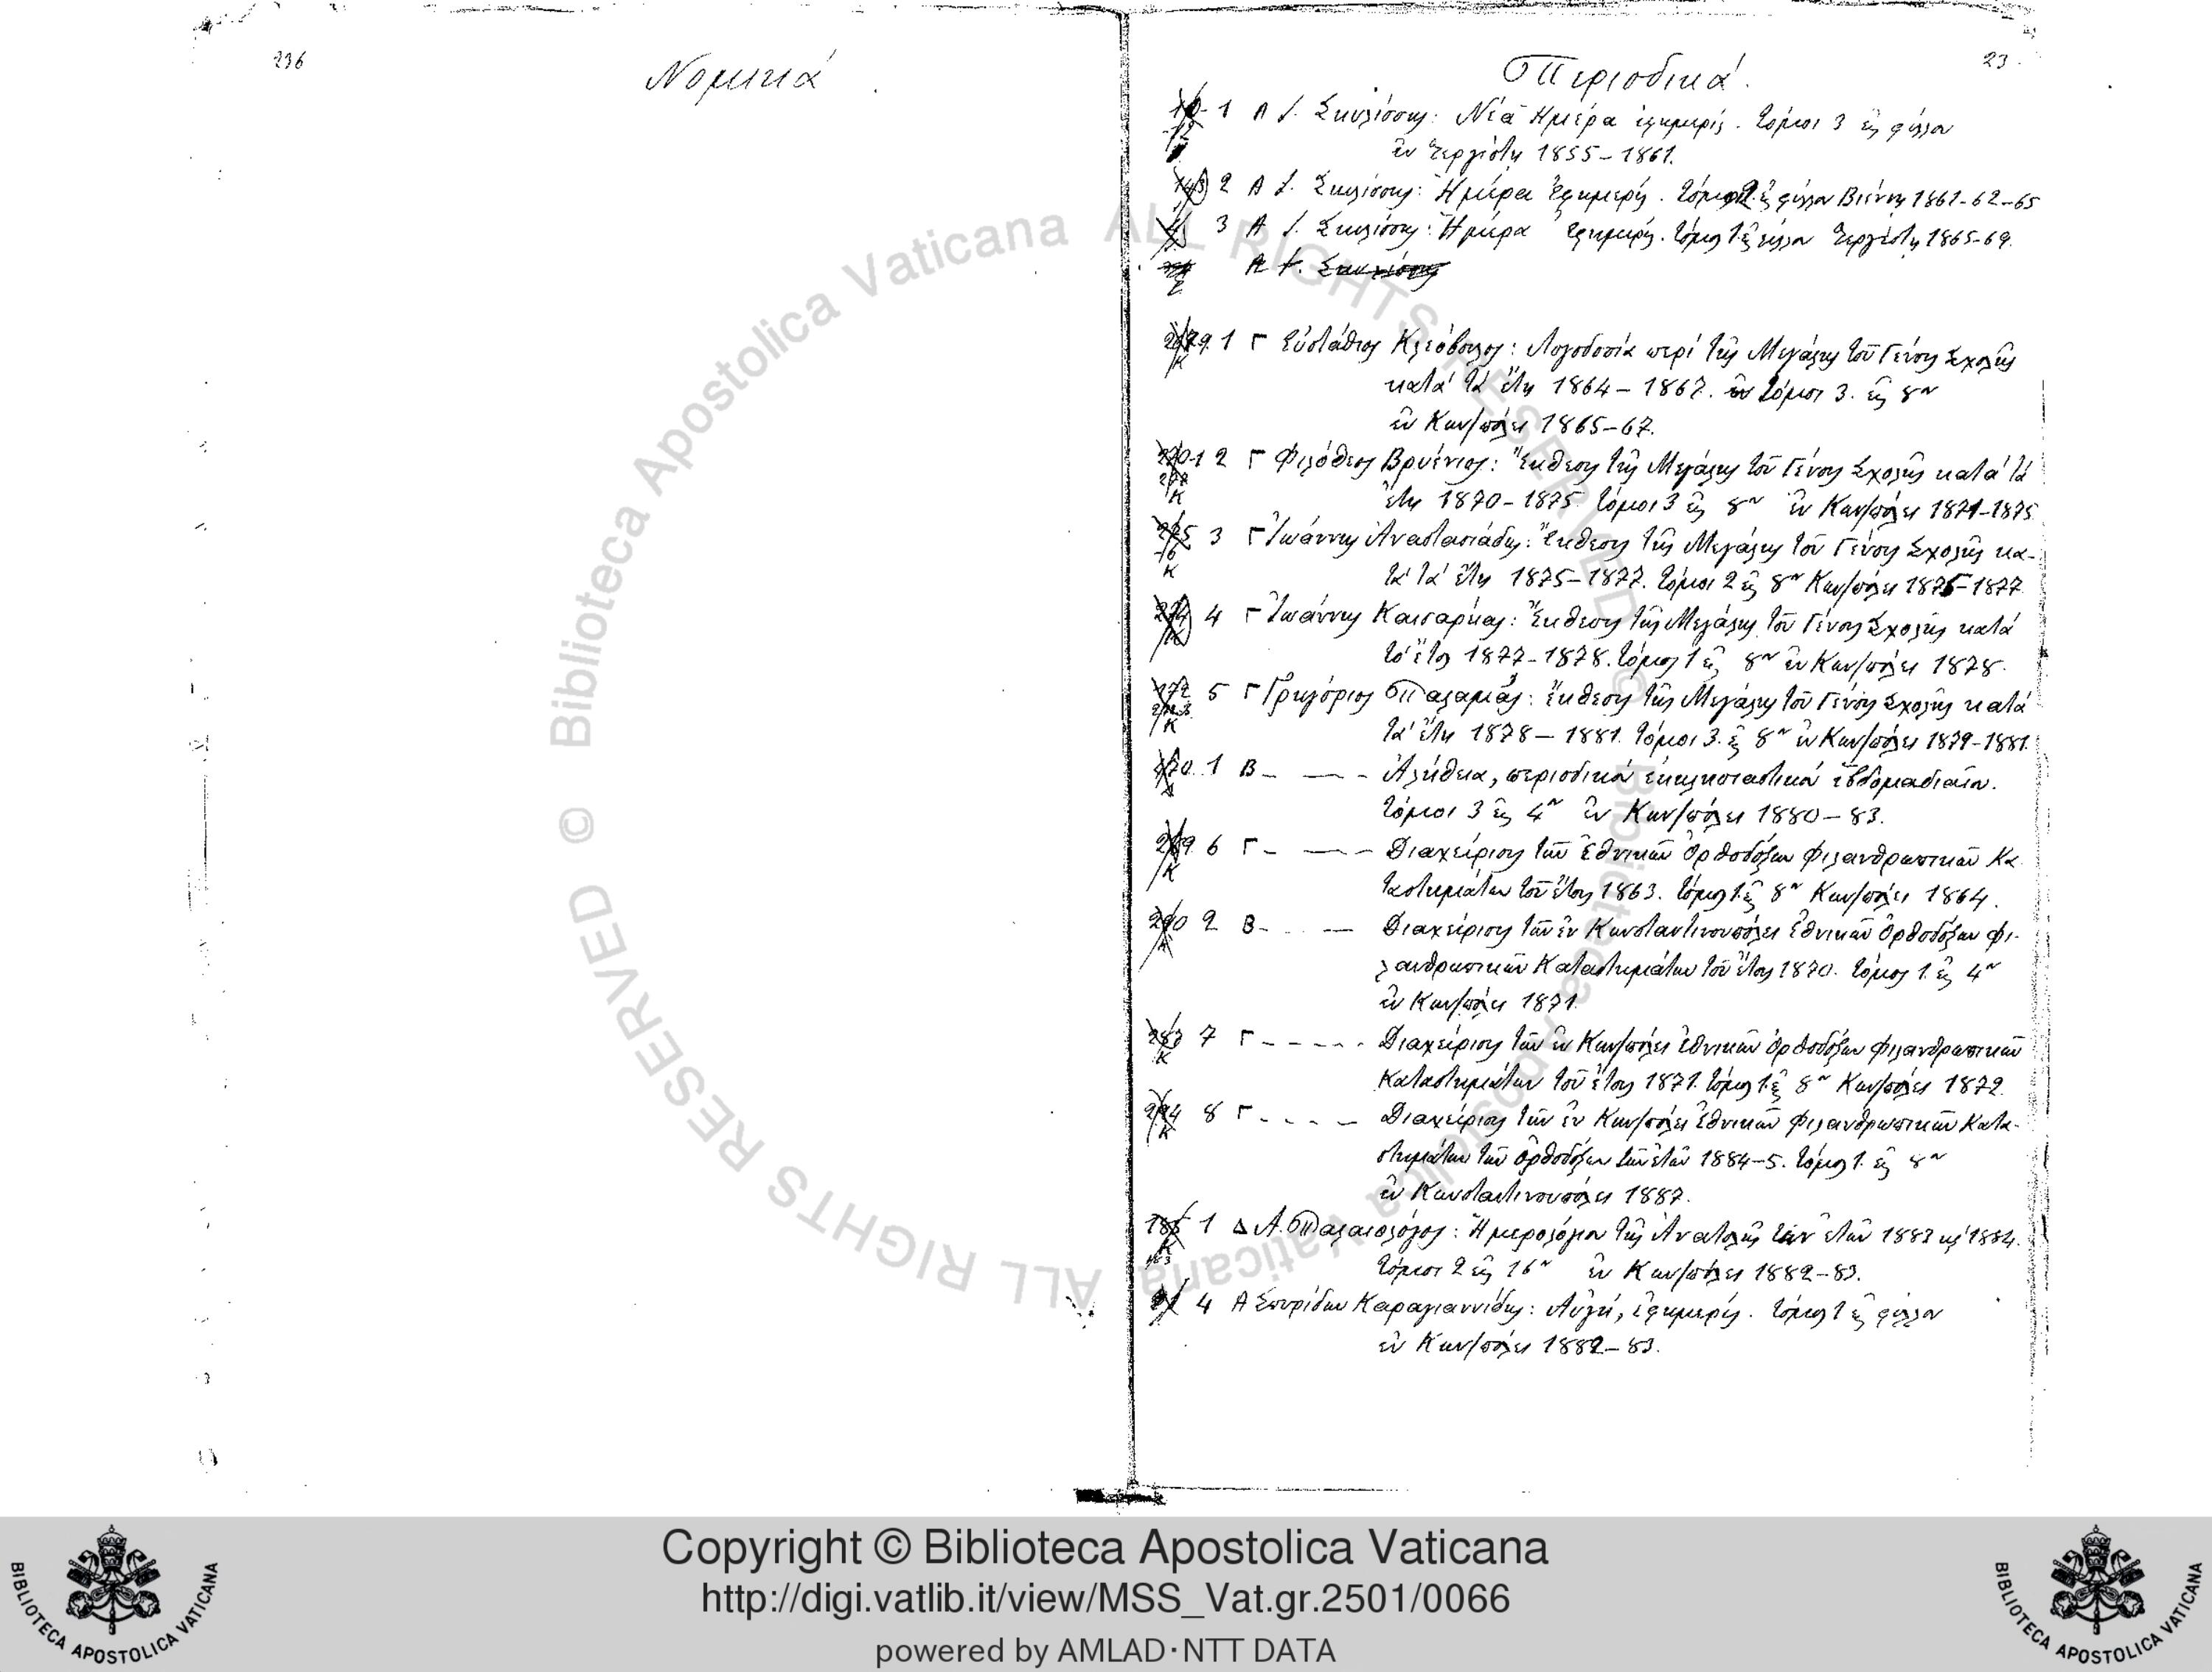 236
Νομικά
Περιοδικά.
23
1 Α Ι. Σκυλίσσης: Νέα Ἡμέρα ἐφημερίς. τόμοι 3 εἰς φύλλον
ἐν Τεργέστῃ 1855–1861.
2 Α Ι. Σκυλίσσης: Ἡμέρα ἐφημερίς. εἰς φύλλον Βιέννης 1861-62-65
3 Α Ι. Σκυλίσσης: Ἡμέρα ἐφημερίς. τόμος 1 εἰς φύλλον Τεργέστῃ 1865-69.
Α Ι. Σκυλίσσης
1 Γ Εὐστάθιος Κλεόβουλος: Λογοδοσία περὶ τῆς Μεγάλης τοῦ Γένους Σχολῆς
κατὰ τὰ ἔτη 1864–1867. τόμοι 3. εἰς 8ον
ἐν Κων/πόλει 1865-67.
2 Γ Φιλόθεος Βρυέννιος: Ἔκθεσις τῆς Μεγάλης τοῦ Γένους Σχολῆς κατὰ τὰ
ἔτη 1870-1875 τόμοι 3 εἰς 8ον ἐν Κων/πόλει 1871-1875
3 Γ Ἰωάννης Ἀναστασιάδης: Ἔκθεσις τῆς Μεγάλης τοῦ Γένους Σχολῆς κα-
τὰ τὰ ἔτη 1875–1877. τόμοι 2 εἰς 8ον Κων/πόλει 1876-1877
4 Γ Ἰωάννης Καισαρείας: Ἔκθεσις τῆς Μεγάλης τοῦ Γένους Σχολῆς κατὰ
τὸ ἔτος 1877-1878. τόμος 1 εἰς 8ον ἐν Κων/πόλει 1878.
5 Γ Γρηγόριος Παλαμᾶς: Ἔκθεσις τῆς Μεγάλης τοῦ Γένους Σχολῆς κατὰ
τὰ ἔτη 1878–1881. τόμοι 3. εἰς 8ον ἐν Κων/πόλει 1879-1881.
1 Β – — – Ἀλήθεια, περιοδικὸν ἐκκλησιαστικὸν ἑβδομαδιαῖον.
τόμοι 3 εἰς 4ον ἐν Κων/πόλει 1880–83.
6 Γ – — – Διαχείρισις τῶν Ἐθνικῶν Ὀρθοδόξων Φιλανθρωπικῶν Κα
ταστημάτων τοῦ ἔτους 1863. τόμος 1 εἰς 8ον Κων/πόλει 1864.
2 Β – — Διαχείρισις τῶν ἐν Κωνσταντινουπόλει Ἐθνικῶν Ὀρθοδόξων Φι-
λανθρωπικῶν Καταστημάτων τοῦ ἔτους 1870. τόμος 1. εἰς 4ον
ἐν Κων/πόλει 1871.
7 Γ – – – – Διαχείρισις τῶν ἐν Κων/πόλει Ἐθνικῶν Ὀρθοδόξων Φιλανθρωπικῶν
Καταστημάτων τοῦ ἔτους 1871. τόμος 1 εἰς 8ον Κων/πόλει 1872.
8 Γ – – – – Διαχείρισις τῶν ἐν Κων/πόλει Ἐθνικῶν Φιλανθρωπικῶν Κατα-
στημάτων τῶν Ὀρθοδόξων τῶν ἐτῶν 1884-5. τόμος 1. εἰς 8ον
ἐν Κωνσταντινουπόλει 1887.
1 Δ Α. Παλαιολόγος: Ἡμερολόγιον τῆς Ἀνατολῆς τῶν ἐτῶν 1883 κ' 1884.
τόμοι 2 εἰς 16ον ἐν Κων/πόλει 1882-83.
4 Α Σπυρίδων Καραγιαννίδης: Αὐγή, ἐφημερίς. τόμος 1 εἰς φύλλον
ἐν Κων/πόλει 1882–83.
© Biblioteca Apostolica Vaticana ALL RIGHTS RESERVED © Biblioteca Apostolica Vaticana ALL RIGHTS RESERVED
Copyright © Biblioteca Apostolica Vaticana
http://digi.vatlib.it/view/MSS_Vat.gr.2501/0066
powered by AMLAD·NTT DATA
BIBLIOTECA APOSTOLICA VATICANA
BIBLIOTECA APOSTOLICA VATICANA